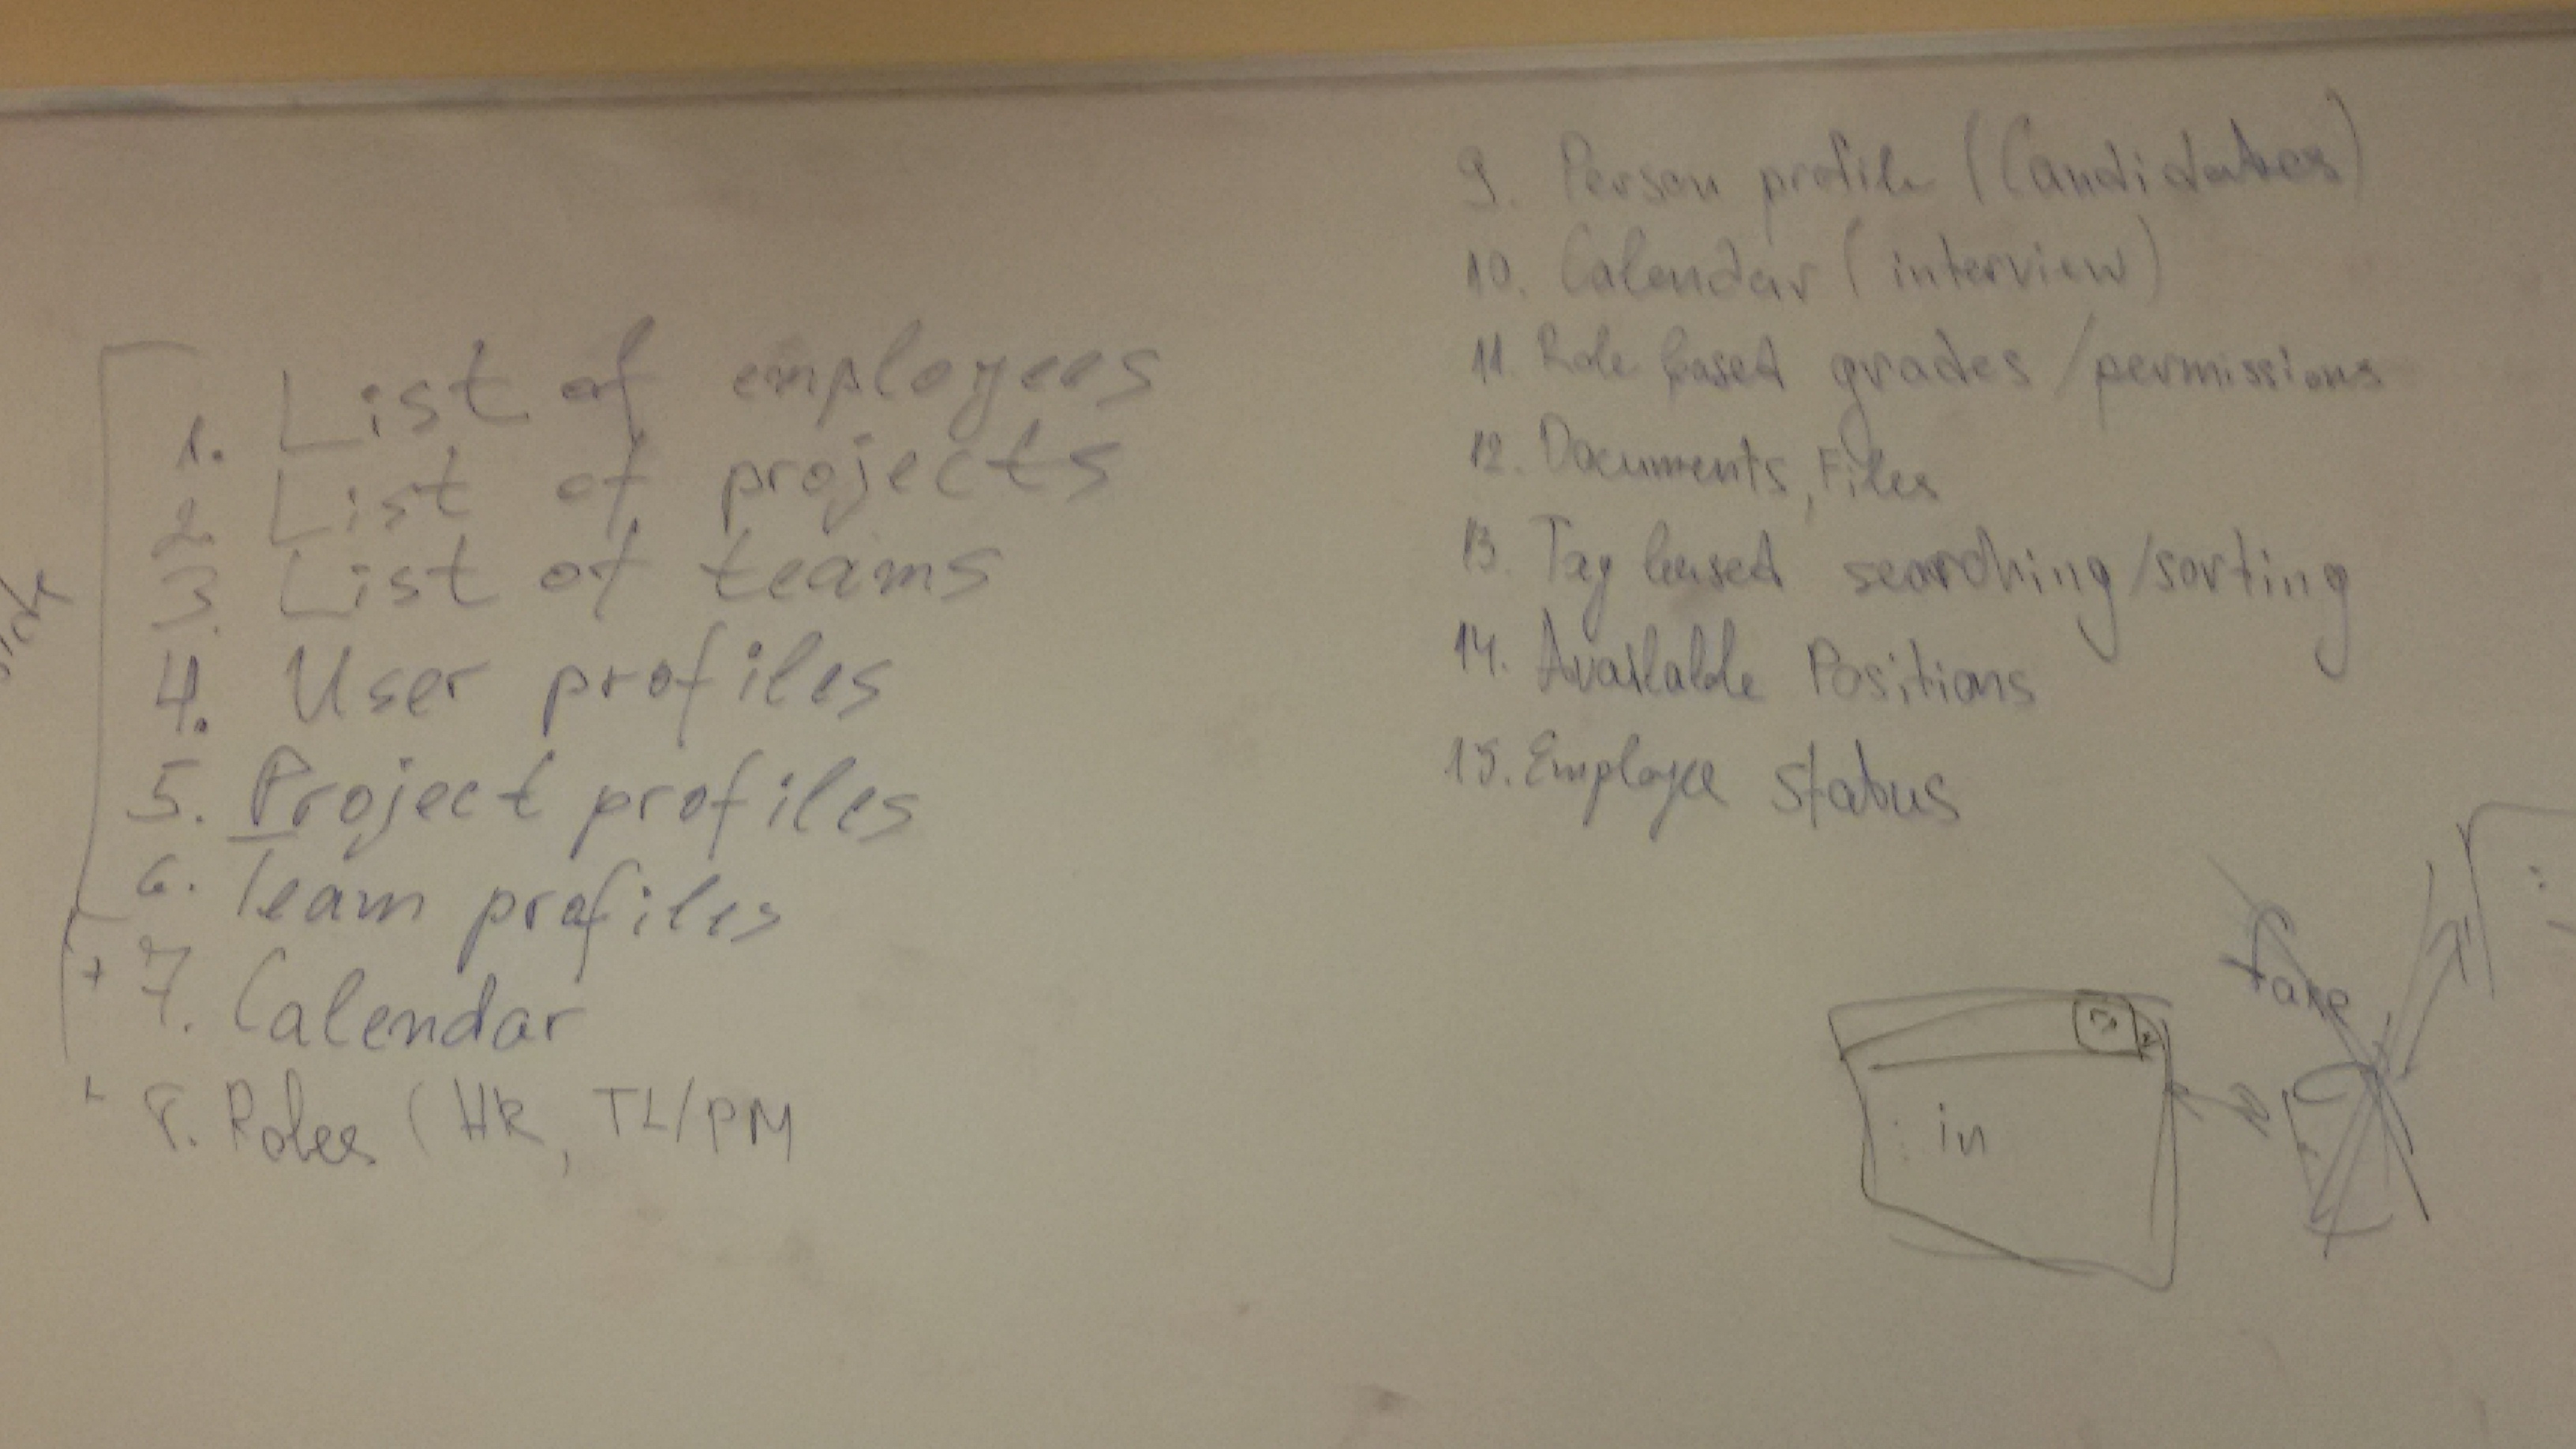 1. List of employees
2. List of projects
3. List of teams
4. User profiles
5. Project profiles
6. Team profiles
+ 7. Calendar
8. Roles (HR, TL/PM
9. Person profile (Candidates)
10. Calendar (interview)
11. Role based grades/permissions
12. Documents, Files
13. Tag based searching/sorting
14. Available Positions
15. Employee Status
fake
in